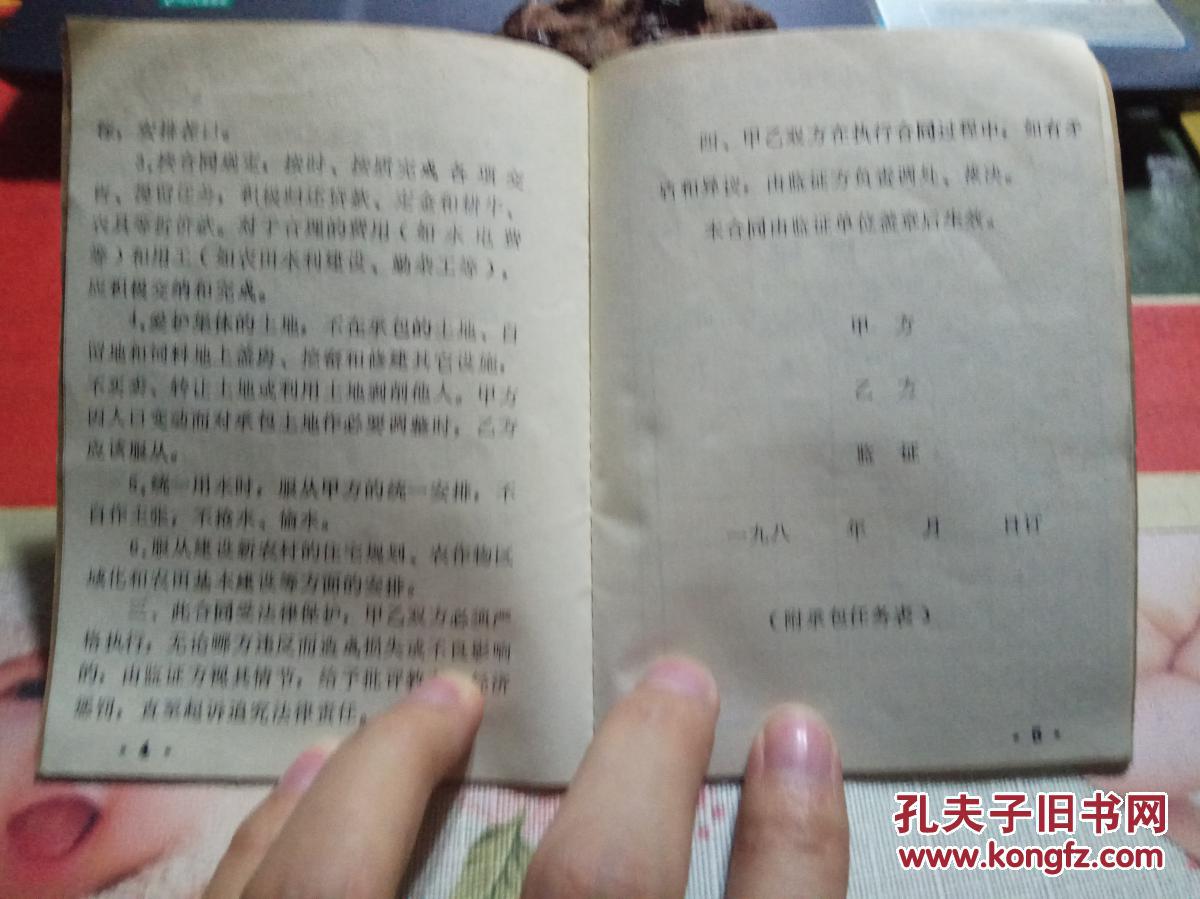 3.按合同规定，按时、按质完成各项交
售、提留任务，积极归还贷款、定金和耕牛、
农具等折价款。对于合理的费用（如水电费
等）和用工（如农田水利建设、勤杂工等），
应积极交纳和完成。
4.爱护集体的土地，不在承包的土地、自
留地和饲料地上盖房、挖窑和修建其它设施，
不买卖、转让土地或利用土地剥削他人。甲方
因人口变动而对承包土地作必要调整时，乙方
应该服从。
5.统一用水时，服从甲方的统一安排，不
自作主张，不抢水、偷水。
6.服从建设新农村的住宅规划、农作物区
域化和农田基本建设等方面的安排。
三、此合同受法律保护，甲乙双方必须严
格执行，无论哪方违反而造成损失或不良影响
的，由监证方视其情节，给予批评教 经济
惩罚，直至起诉追究法律责任。
4
四、甲乙双方在执行合同过程中，如有矛
盾和异议，由监证方负责调处、裁决。
本合同由监证单位盖章后生效。
甲 方
乙 方
监 证
一九八 年 月 日订
（附承包任务表）
5
孔夫子旧书网
www.kongfz.com